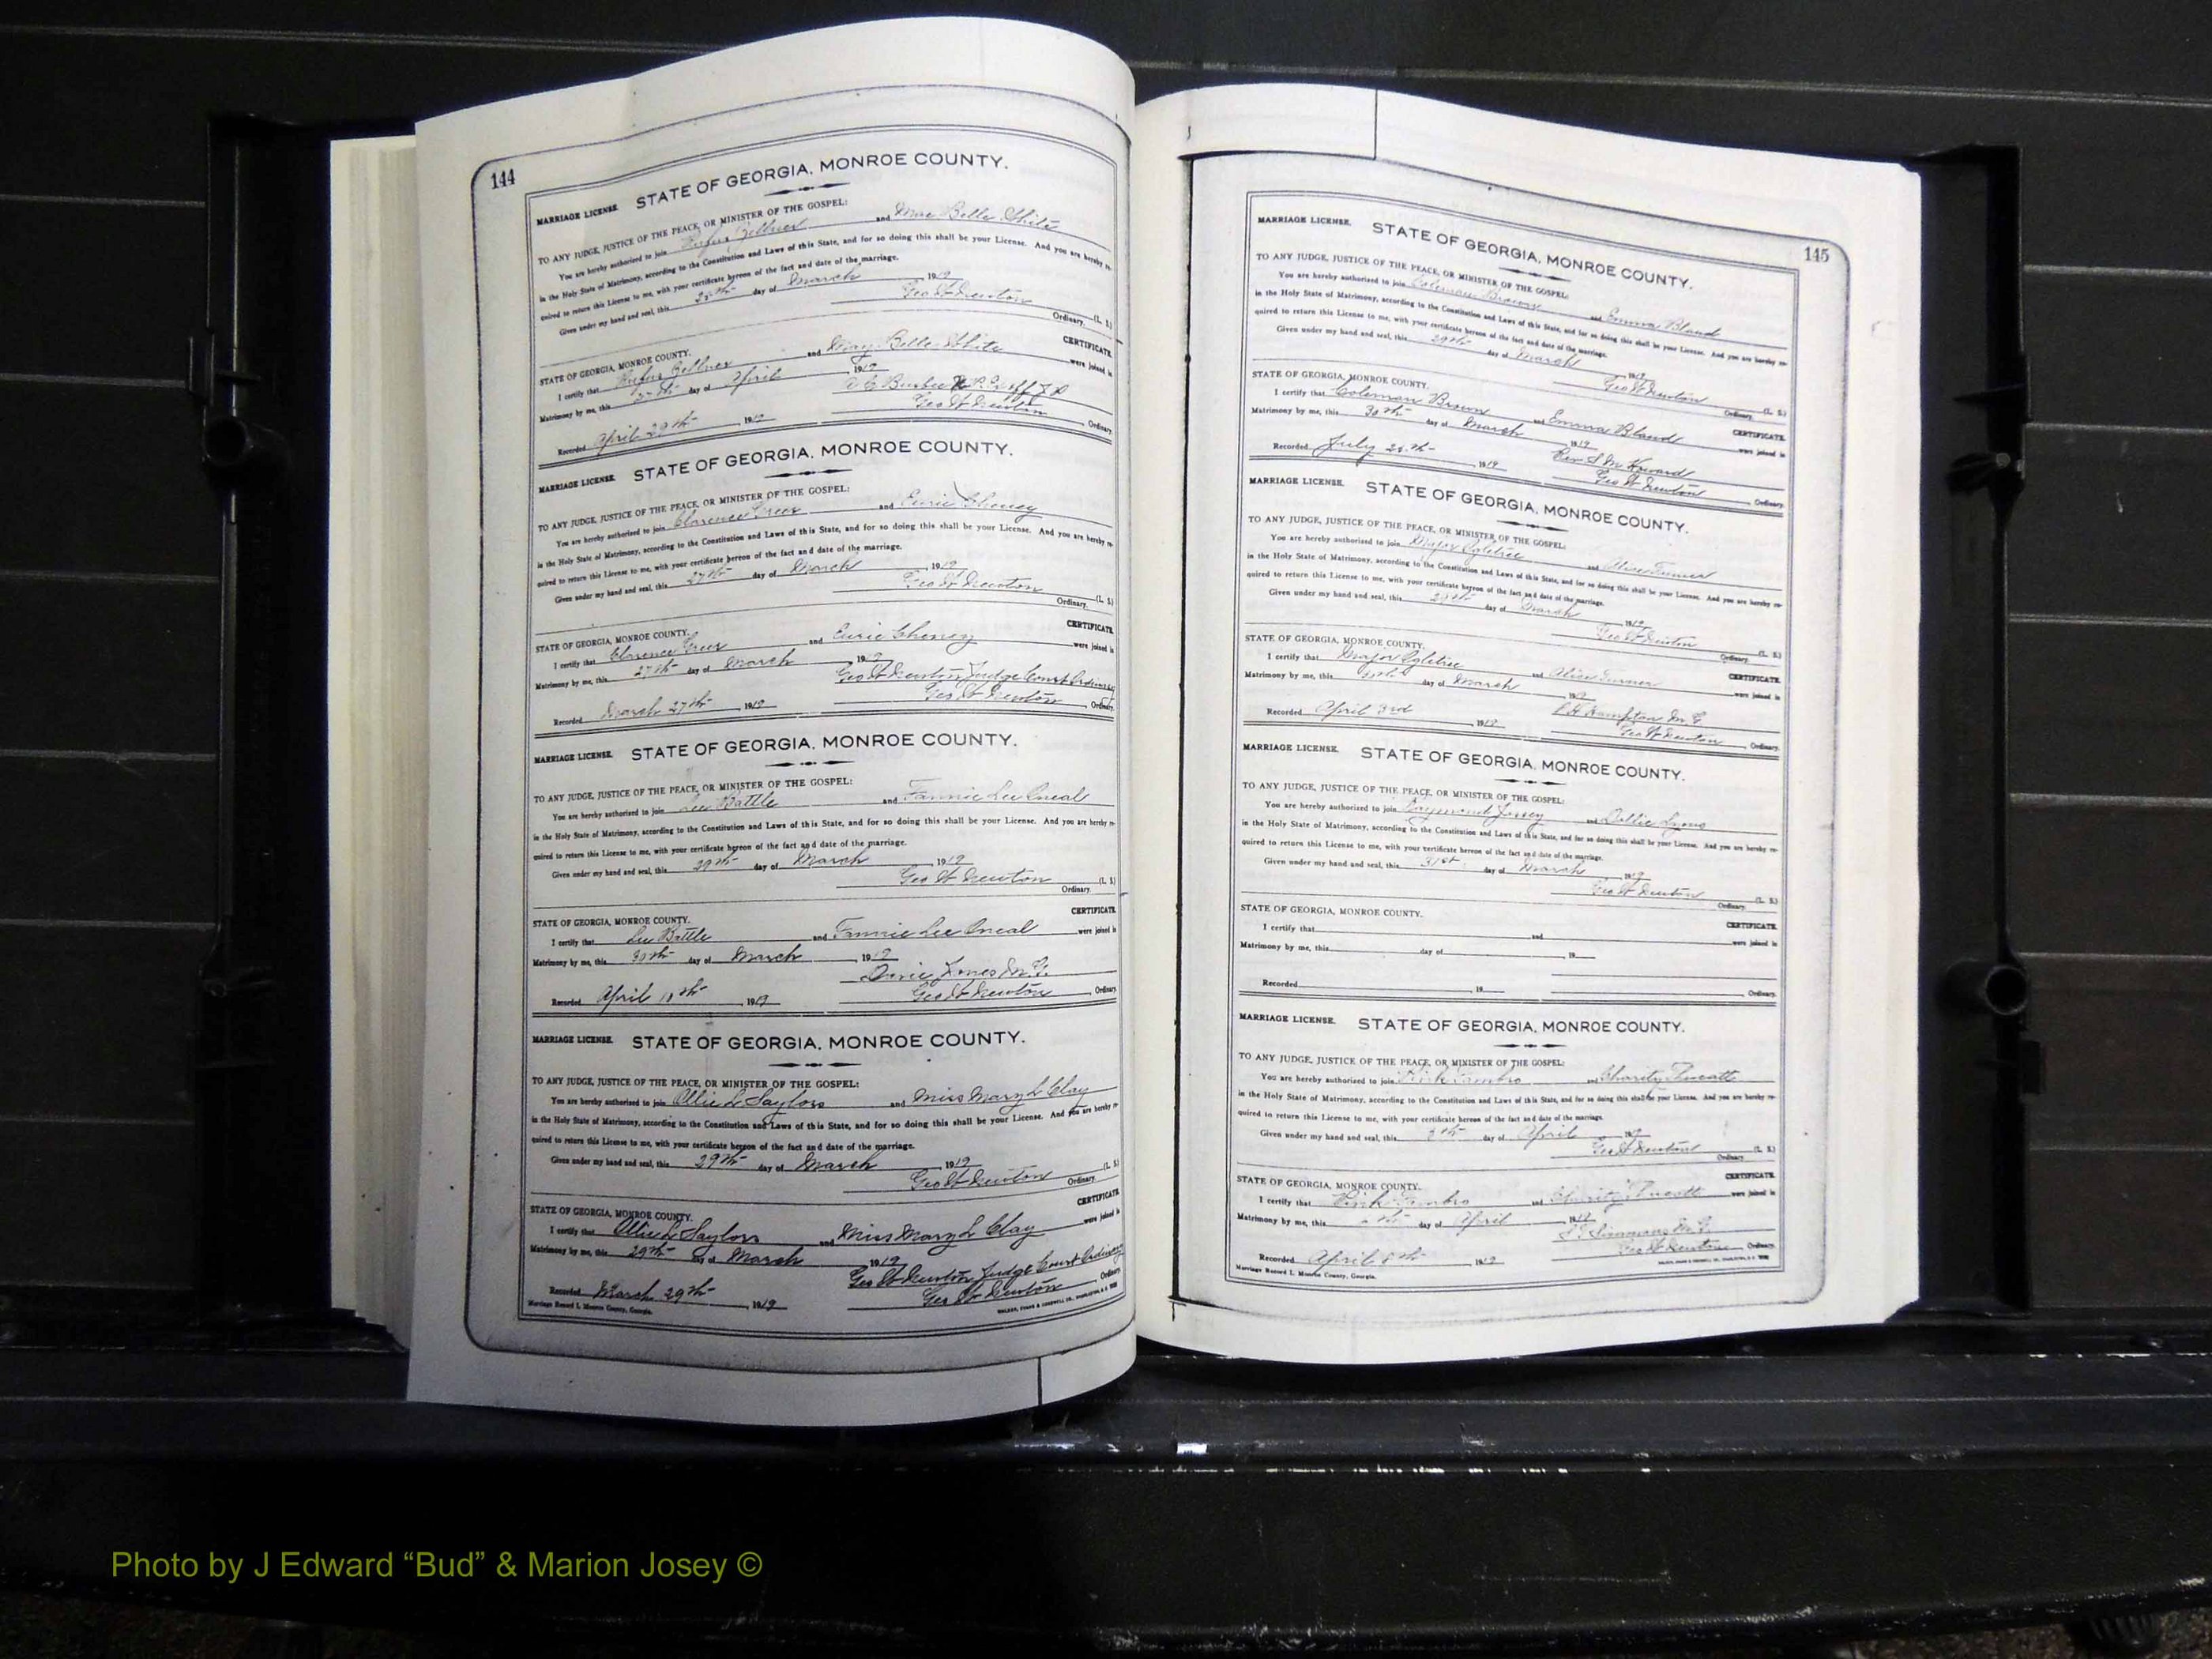 144
STATE OF GEORGIA, MONROE COUNTY.
MARRIAGE LICENSE.
TO ANY JUDGE, JUSTICE OF THE PEACE, OR MINISTER OF THE GOSPEL:
You are hereby authorized to join Rufus Zellner and Mae Belle White
in the Holy State of Matrimony, according to the Constitution and Laws of this State, and for so doing this shall be your License. And you are hereby re-
quired to return this License to me, with your certificate hereon of the fact and date of the marriage.
Given under my hand and seal, this day of March 1919
Geo W Newton (L. S.)
Ordinary.
STATE OF GEORGIA, MONROE COUNTY. CERTIFICATE.
I certify that Rufus Zellner and May Belle White were joined in
Matrimony by me, this day of April 1919
Recorded April 29th 1919 Geo W Newton Ordinary.
MARRIAGE LICENSE. STATE OF GEORGIA, MONROE COUNTY.
TO ANY JUDGE, JUSTICE OF THE PEACE, OR MINISTER OF THE GOSPEL:
You are hereby authorized to join Clarence Greer and Cheney
in the Holy State of Matrimony, according to the Constitution and Laws of this State, and for so doing this shall be your License. And you are hereby re-
quired to return this License to me, with your certificate hereon of the fact and date of the marriage.
Given under my hand and seal, this 27th day of March 1919
Geo W Newton (L. S.)
Ordinary.
STATE OF GEORGIA, MONROE COUNTY. CERTIFICATE.
I certify that Clarence Greer and Cheney were joined in
Matrimony by me, this 27th day of March 1919
Geo W Newton Judge Court Ordinary
Recorded March 27th 1919 Geo W Newton Ordinary.
MARRIAGE LICENSE. STATE OF GEORGIA, MONROE COUNTY.
TO ANY JUDGE, JUSTICE OF THE PEACE, OR MINISTER OF THE GOSPEL:
You are hereby authorized to join Lee Battle and Fannie Lee Oneal
in the Holy State of Matrimony, according to the Constitution and Laws of this State, and for so doing this shall be your License. And you are hereby re-
quired to return this License to me, with your certificate hereon of the fact and date of the marriage.
Given under my hand and seal, this 29th day of March 1919
Geo W Newton (L. S.)
Ordinary.
STATE OF GEORGIA, MONROE COUNTY. CERTIFICATE.
I certify that Lee Battle and Fannie Lee Oneal were joined in
Matrimony by me, this 30th day of March 1919
Jones M.G.
Recorded April 1919 Geo W Newton Ordinary.
MARRIAGE LICENSE. STATE OF GEORGIA, MONROE COUNTY.
TO ANY JUDGE, JUSTICE OF THE PEACE, OR MINISTER OF THE GOSPEL:
You are hereby authorized to join Ollie L Saylors and Miss Mary L Clay
in the Holy State of Matrimony, according to the Constitution and Laws of this State, and for so doing this shall be your License. And you are hereby re-
quired to return this License to me, with your certificate hereon of the fact and date of the marriage.
Given under my hand and seal, this 29th day of March 1919
Geo W Newton (L. S.)
Ordinary.
STATE OF GEORGIA, MONROE COUNTY. CERTIFICATE.
I certify that Ollie L Saylors and Miss Mary L Clay were joined in
Matrimony by me, this 29th day of March 1919
Geo W Newton Judge Court Ordinary
Recorded March 29th 1919 Geo W Newton Ordinary
Marriage Record L Monroe County, Georgia.
145
MARRIAGE LICENSE. STATE OF GEORGIA, MONROE COUNTY.
TO ANY JUDGE, JUSTICE OF THE PEACE, OR MINISTER OF THE GOSPEL:
You are hereby authorized to join Coleman Brown and Emma Bland
in the Holy State of Matrimony, according to the Constitution and Laws of this State, and for so doing this shall be your License. And you are hereby re-
quired to return this License to me, with your certificate hereon of the fact and date of the marriage.
Given under my hand and seal, this 29th day of March 1919
Geo W Newton (L. S.)
Ordinary.
STATE OF GEORGIA, MONROE COUNTY. CERTIFICATE.
I certify that Coleman Brown and Emma Bland were joined in
Matrimony by me, this 30th day of March 1919
Rev S M Howard
Recorded July 1919 Geo W Newton Ordinary.
MARRIAGE LICENSE. STATE OF GEORGIA, MONROE COUNTY.
TO ANY JUDGE, JUSTICE OF THE PEACE, OR MINISTER OF THE GOSPEL:
You are hereby authorized to join Major Ogletree and Alice Turner
in the Holy State of Matrimony, according to the Constitution and Laws of this State, and for so doing this shall be your License. And you are hereby re-
quired to return this License to me, with your certificate hereon of the fact and date of the marriage.
Given under my hand and seal, this day of March 1919
Geo W Newton (L. S.)
Ordinary.
STATE OF GEORGIA, MONROE COUNTY. CERTIFICATE.
I certify that Major Ogletree and Alice Turner were joined in
Matrimony by me, this day of March 1919
Hampton M G
Recorded April 3rd 1919 Geo W Newton Ordinary.
MARRIAGE LICENSE. STATE OF GEORGIA, MONROE COUNTY.
TO ANY JUDGE, JUSTICE OF THE PEACE, OR MINISTER OF THE GOSPEL:
You are hereby authorized to join Raymond Jossey and Dollie Lyons
in the Holy State of Matrimony, according to the Constitution and Laws of this State, and for so doing this shall be your License. And you are hereby re-
quired to return this License to me, with your certificate hereon of the fact and date of the marriage.
Given under my hand and seal, this 31st day of March 1919
Geo W Newton (L. S.)
Ordinary.
STATE OF GEORGIA, MONROE COUNTY. CERTIFICATE.
I certify that and were joined in
Matrimony by me, this day of 19
Recorded 19 Ordinary.
MARRIAGE LICENSE. STATE OF GEORGIA, MONROE COUNTY.
TO ANY JUDGE, JUSTICE OF THE PEACE, OR MINISTER OF THE GOSPEL:
You are hereby authorized to join and Charity
in the Holy State of Matrimony, according to the Constitution and Laws of this State, and for so doing this shall be your License. And you are hereby re-
quired to return this License to me, with your certificate hereon of the fact and date of the marriage.
Given under my hand and seal, this day of April 1919
Geo W Newton (L. S.)
Ordinary.
STATE OF GEORGIA, MONROE COUNTY. CERTIFICATE.
I certify that and Charity were joined in
Matrimony by me, this day of April 1919
Simmons M.G.
Recorded April 8th 1919 Geo W Newton Ordinary.
Marriage Record L Monroe County, Georgia.
Photo by J Edward “Bud” & Marion Josey ©